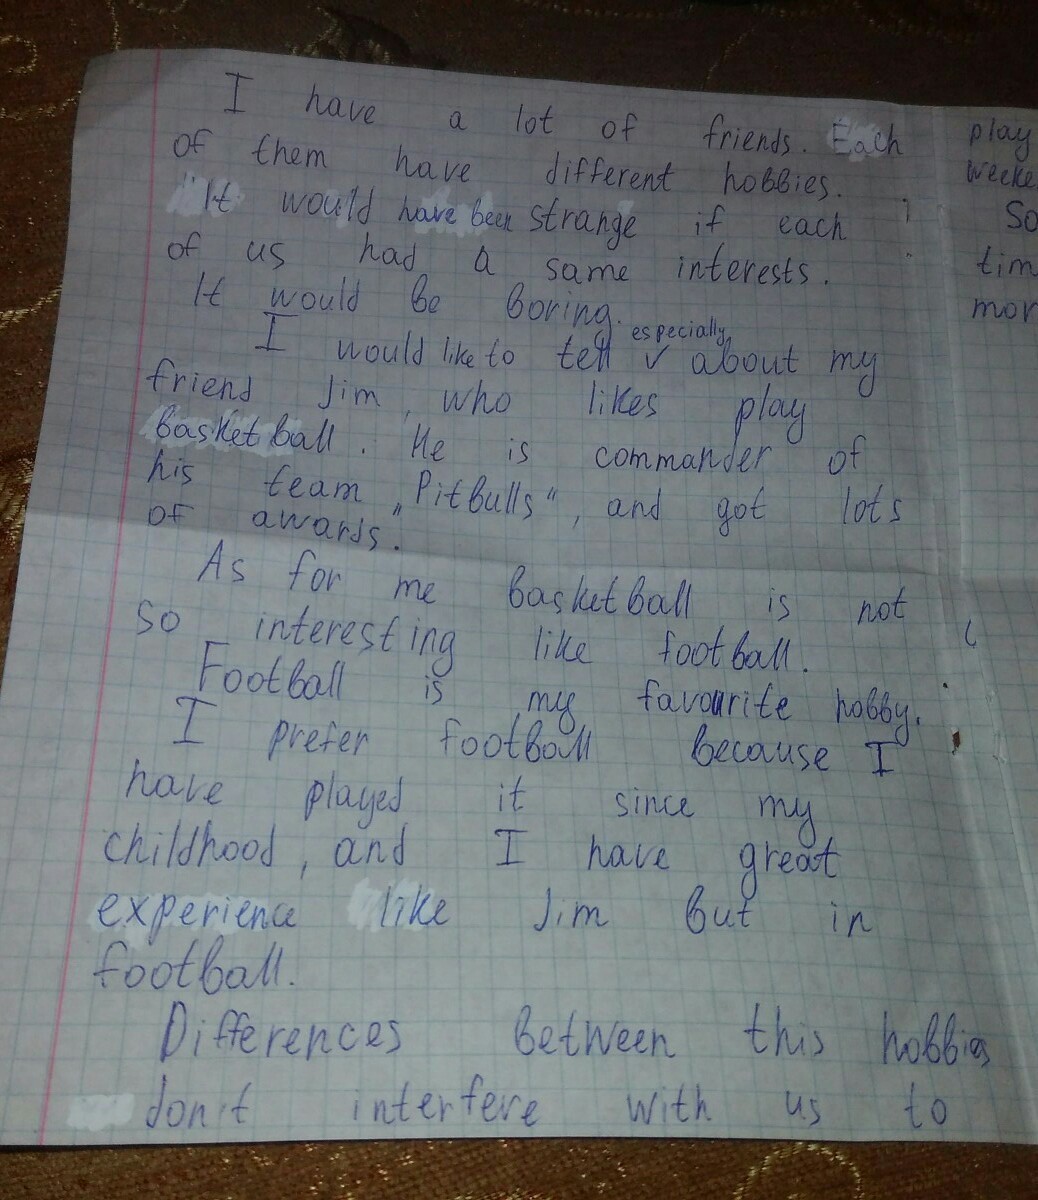 I have a lot of friends. Each
of them have different hobbies.
It would have been strange if each
of us had a same interests.
It would be boring.
I would like to tell especially about my
friend Jim, who likes play
basketball. He is commander of
his team „Pitbulls“, and got lots
of awards.
As for me basketball is not
so interesting like football.
Football is my favourite hobby.
I prefer football because I
have played it since my
childhood, and I have great
experience like Jim but in
football.
Differences between this hobbies
don't interfere with us to
play
weeke
So
tim
mor